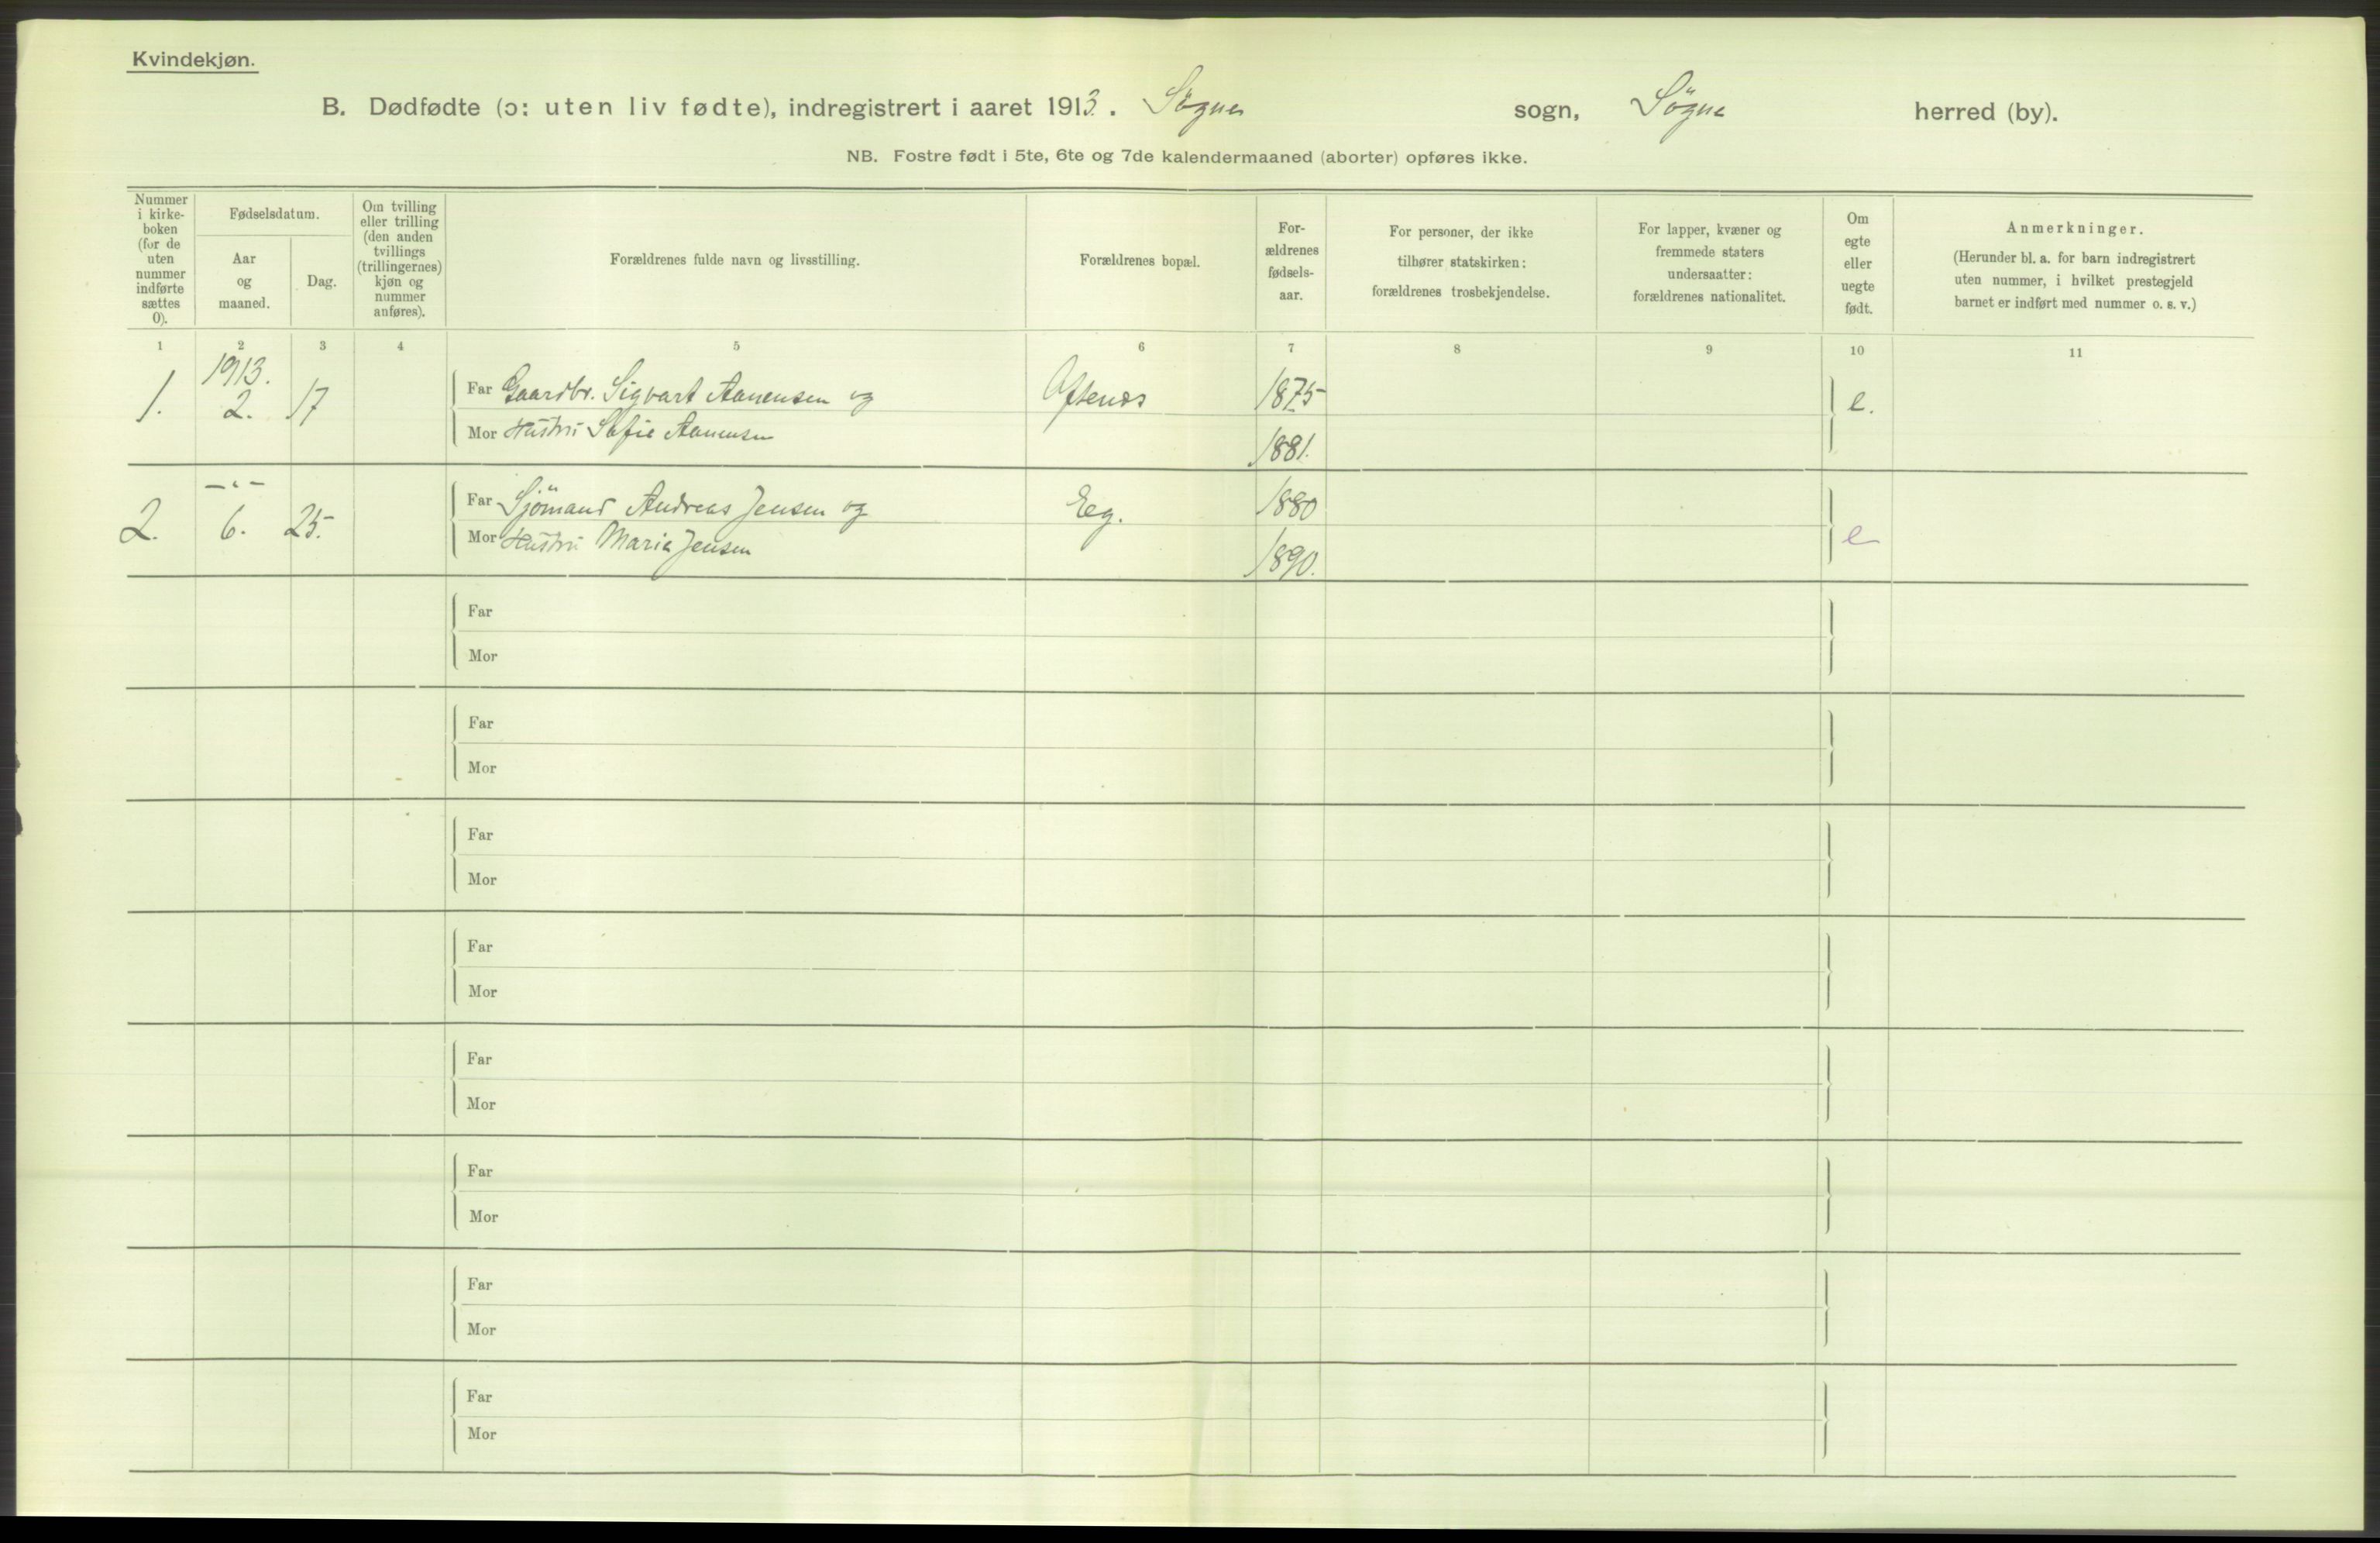 Kvindekjøn.
B. Dødfødte (ɔ: uten liv fødte), indregistrert i aaret 1913. Søgne sogn, Søgne herred (by).
NB. Fostre født i 5te, 6te og 7de kalendermaaned (aborter) opføres ikke.
Nummer
i kirke-
boken
(for de
uten
nummer
indførte
sættes
0).
Fødselsdatum.
Aar
og
maaned.
Dag.
Om tvilling
eller trilling
(den anden
tvillings
(trillingernes)
kjøn og
nummer
anføres).
Forældrenes fulde navn og livsstilling.
Forældrenes bopæl.
For-
ældrenes
fødsels-
aar.
For personer, der ikke
tilhører statskirken:
forældrenes trosbekjendelse.
For lapper, kvæner og
fremmede staters
undersaatter:
forældrenes nationalitet.
Om
egte
eller
uegte
født.
Anmerkninger.
(Herunder bl. a. for barn indregistrert
uten nummer, i hvilket prestegjeld
barnet er indført med nummer o. s. v.)
1 2 3 4 5 6 7 8 9 10 11
1913.
1. 2. 17 Far Gaardbr. Sigvart Aanensen og Aftenæs 1875 e.
Mor Hustru Sofie Aanensen 1881.
— " —
2. 6. 25. Far Sjömand Andreas Jensen og Eeg. 1880 e
Mor Hustru Maria Jensen 1890.
Far
Mor
Far
Mor
Far
Mor
Far
Mor
Far
Mor
Far
Mor
Far
Mor
Far
Mor